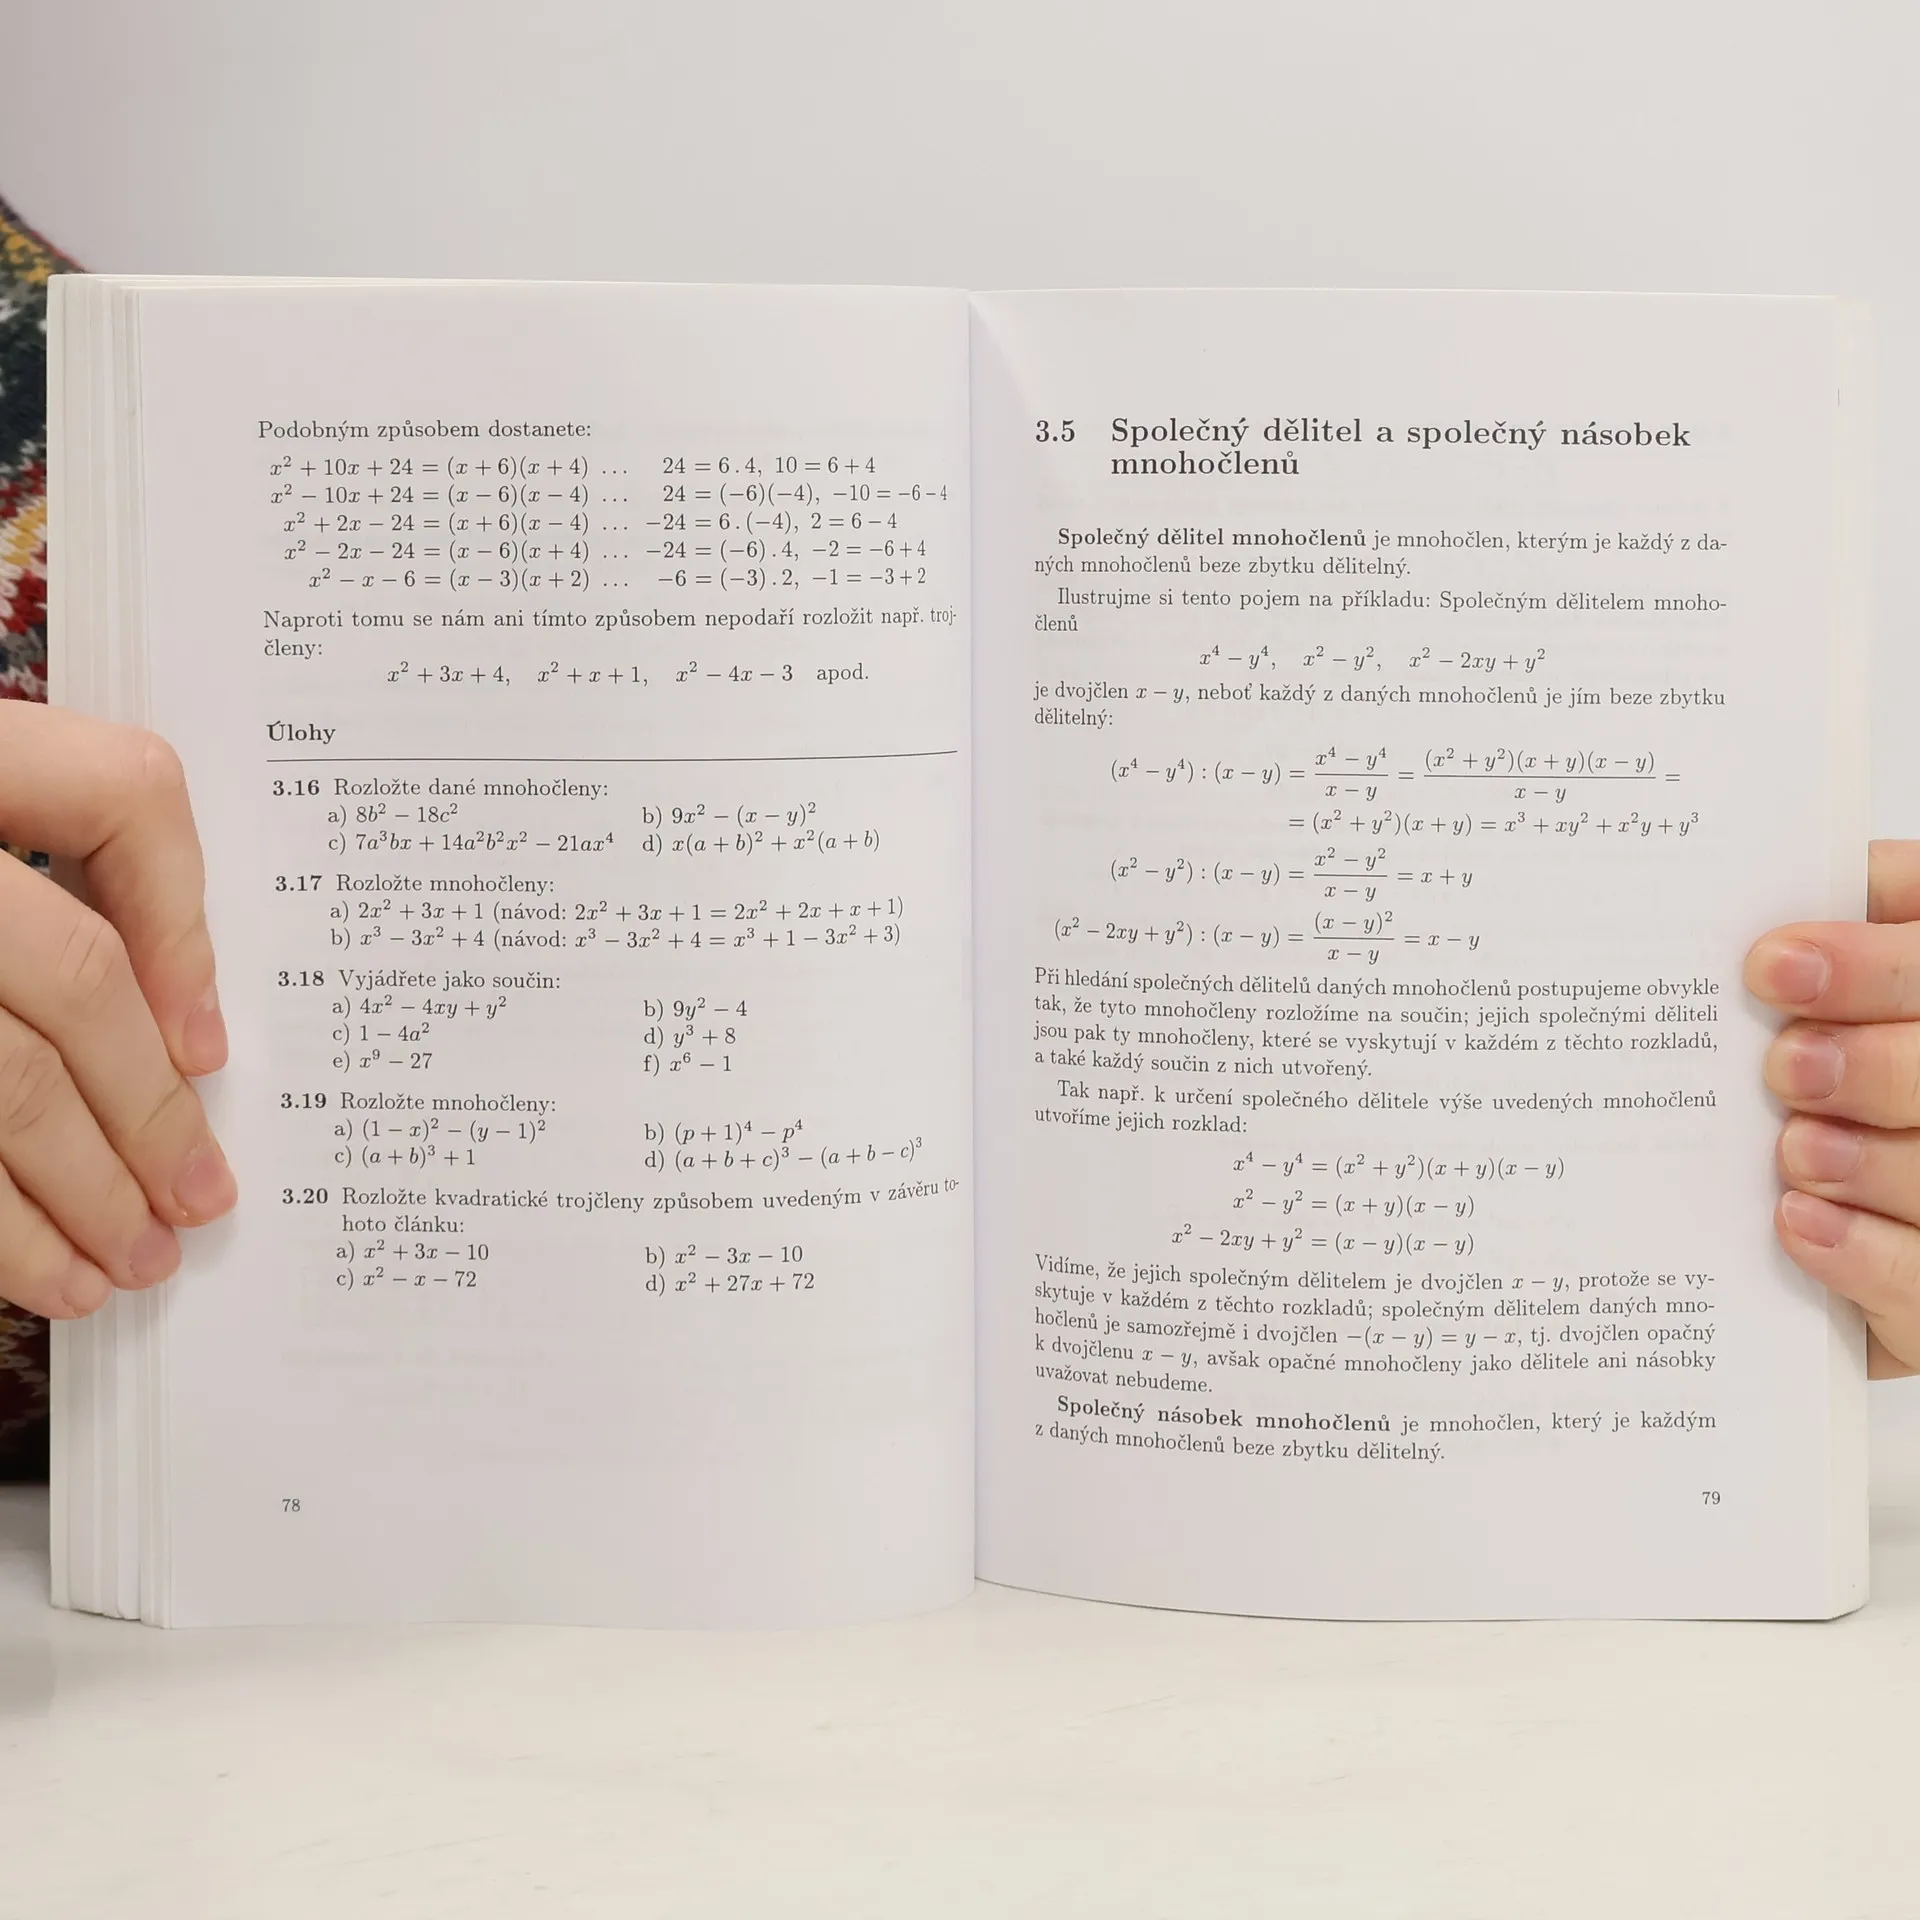 Podobným způsobem dostanete:
x² + 10x + 24 = (x + 6)(x + 4) ... 24 = 6 . 4, 10 = 6 + 4
x² − 10x + 24 = (x − 6)(x − 4) ... 24 = (−6)(−4), −10 = −6 − 4
x² + 2x − 24 = (x + 6)(x − 4) ... −24 = 6 . (−4), 2 = 6 − 4
x² − 2x − 24 = (x − 6)(x + 4) ... −24 = (−6) . 4, −2 = −6 + 4
x² − x − 6 = (x − 3)(x + 2) ... −6 = (−3) . 2, −1 = −3 + 2
Naproti tomu se nám ani tímto způsobem nepodaří rozložit např. troj-
členy:
x² + 3x + 4, x² + x + 1, x² − 4x − 3 apod.
Úlohy
3.16 Rozložte dané mnohočleny:
a) 8b² − 18c² b) 9x² − (x − y)²
c) 7a³bx + 14a²b²x² − 21ax⁴ d) x(a + b)² + x²(a + b)
3.17 Rozložte mnohočleny:
a) 2x² + 3x + 1 (návod: 2x² + 3x + 1 = 2x² + 2x + x + 1)
b) x³ − 3x² + 4 (návod: x³ − 3x² + 4 = x³ + 1 − 3x² + 3)
3.18 Vyjádřete jako součin:
a) 4x² − 4xy + y² b) 9y² − 4
c) 1 − 4a² d) y³ + 8
e) x⁹ − 27 f) x⁶ − 1
3.19 Rozložte mnohočleny:
a) (1 − x)² − (y − 1)² b) (p + 1)⁴ − p⁴
c) (a + b)³ + 1 d) (a + b + c)³ − (a + b − c)³
3.20 Rozložte kvadratické trojčleny způsobem uvedeným v závěru to-
hoto článku:
a) x² + 3x − 10 b) x² − 3x − 10
c) x² − x − 72 d) x² + 27x + 72
78
3.5 Společný dělitel a společný násobek
mnohočlenů
Společný dělitel mnohočlenů je mnohočlen, kterým je každý z da-
ných mnohočlenů beze zbytku dělitelný.
Ilustrujme si tento pojem na příkladu: Společným dělitelem mnoho-
členů
x⁴ − y⁴, x² − y², x² − 2xy + y²
je dvojčlen x − y, neboť každý z daných mnohočlenů je jím beze zbytku
dělitelný:
(x⁴ − y⁴) : (x − y) = (x⁴ − y⁴)/(x − y) = (x² + y²)(x + y)(x − y)/(x − y) =
= (x² + y²)(x + y) = x³ + xy² + x²y + y³
(x² − y²) : (x − y) = (x² − y²)/(x − y) = x + y
(x² − 2xy + y²) : (x − y) = (x − y)²/(x − y) = x − y
Při hledání společných dělitelů daných mnohočlenů postupujeme obvykle
tak, že tyto mnohočleny rozložíme na součin; jejich společnými děliteli
jsou pak ty mnohočleny, které se vyskytují v každém z těchto rozkladů,
a také každý součin z nich utvořený.
Tak např. k určení společného dělitele výše uvedených mnohočlenů
utvoříme jejich rozklad:
x⁴ − y⁴ = (x² + y²)(x + y)(x − y)
x² − y² = (x + y)(x − y)
x² − 2xy + y² = (x − y)(x − y)
Vidíme, že jejich společným dělitelem je dvojčlen x − y, protože se vy-
skytuje v každém z těchto rozkladů; společným dělitelem daných mno-
hočlenů je samozřejmě i dvojčlen −(x − y) = y − x, tj. dvojčlen opačný
k dvojčlenu x − y, avšak opačné mnohočleny jako dělitele ani násobky
uvažovat nebudeme.
Společný násobek mnohočlenů je mnohočlen, který je každým
z daných mnohočlenů beze zbytku dělitelný.
79